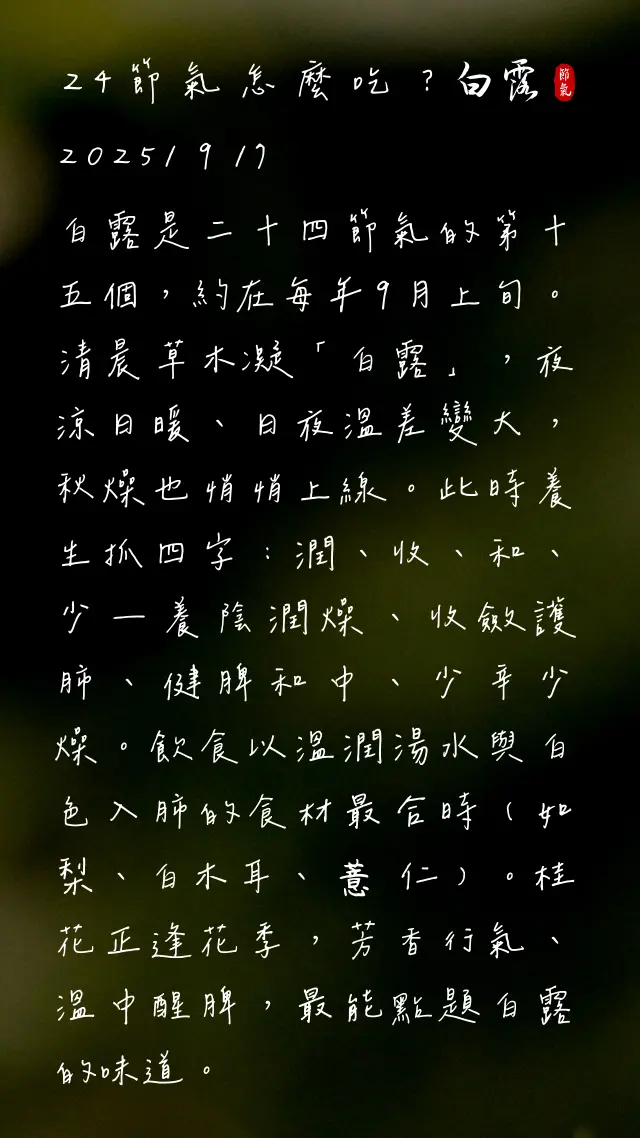 24節氣怎麼吃？白露 節氣
2025/9/7
白露是二十四節氣的第十
五個，約在每年9月上旬。
清晨草木凝「白露」，夜
涼日暖、日夜溫差變大，
秋燥也悄悄上線。此時養
生抓四字：潤、收、和、
少—養陰潤燥、收斂護
肺、健脾和中、少辛少
燥。飲食以溫潤湯水與白
色入肺的食材最合時（如
梨、白木耳、薏仁）。桂
花正逢花季，芳香行氣、
溫中醒脾，最能點題白露
的味道。